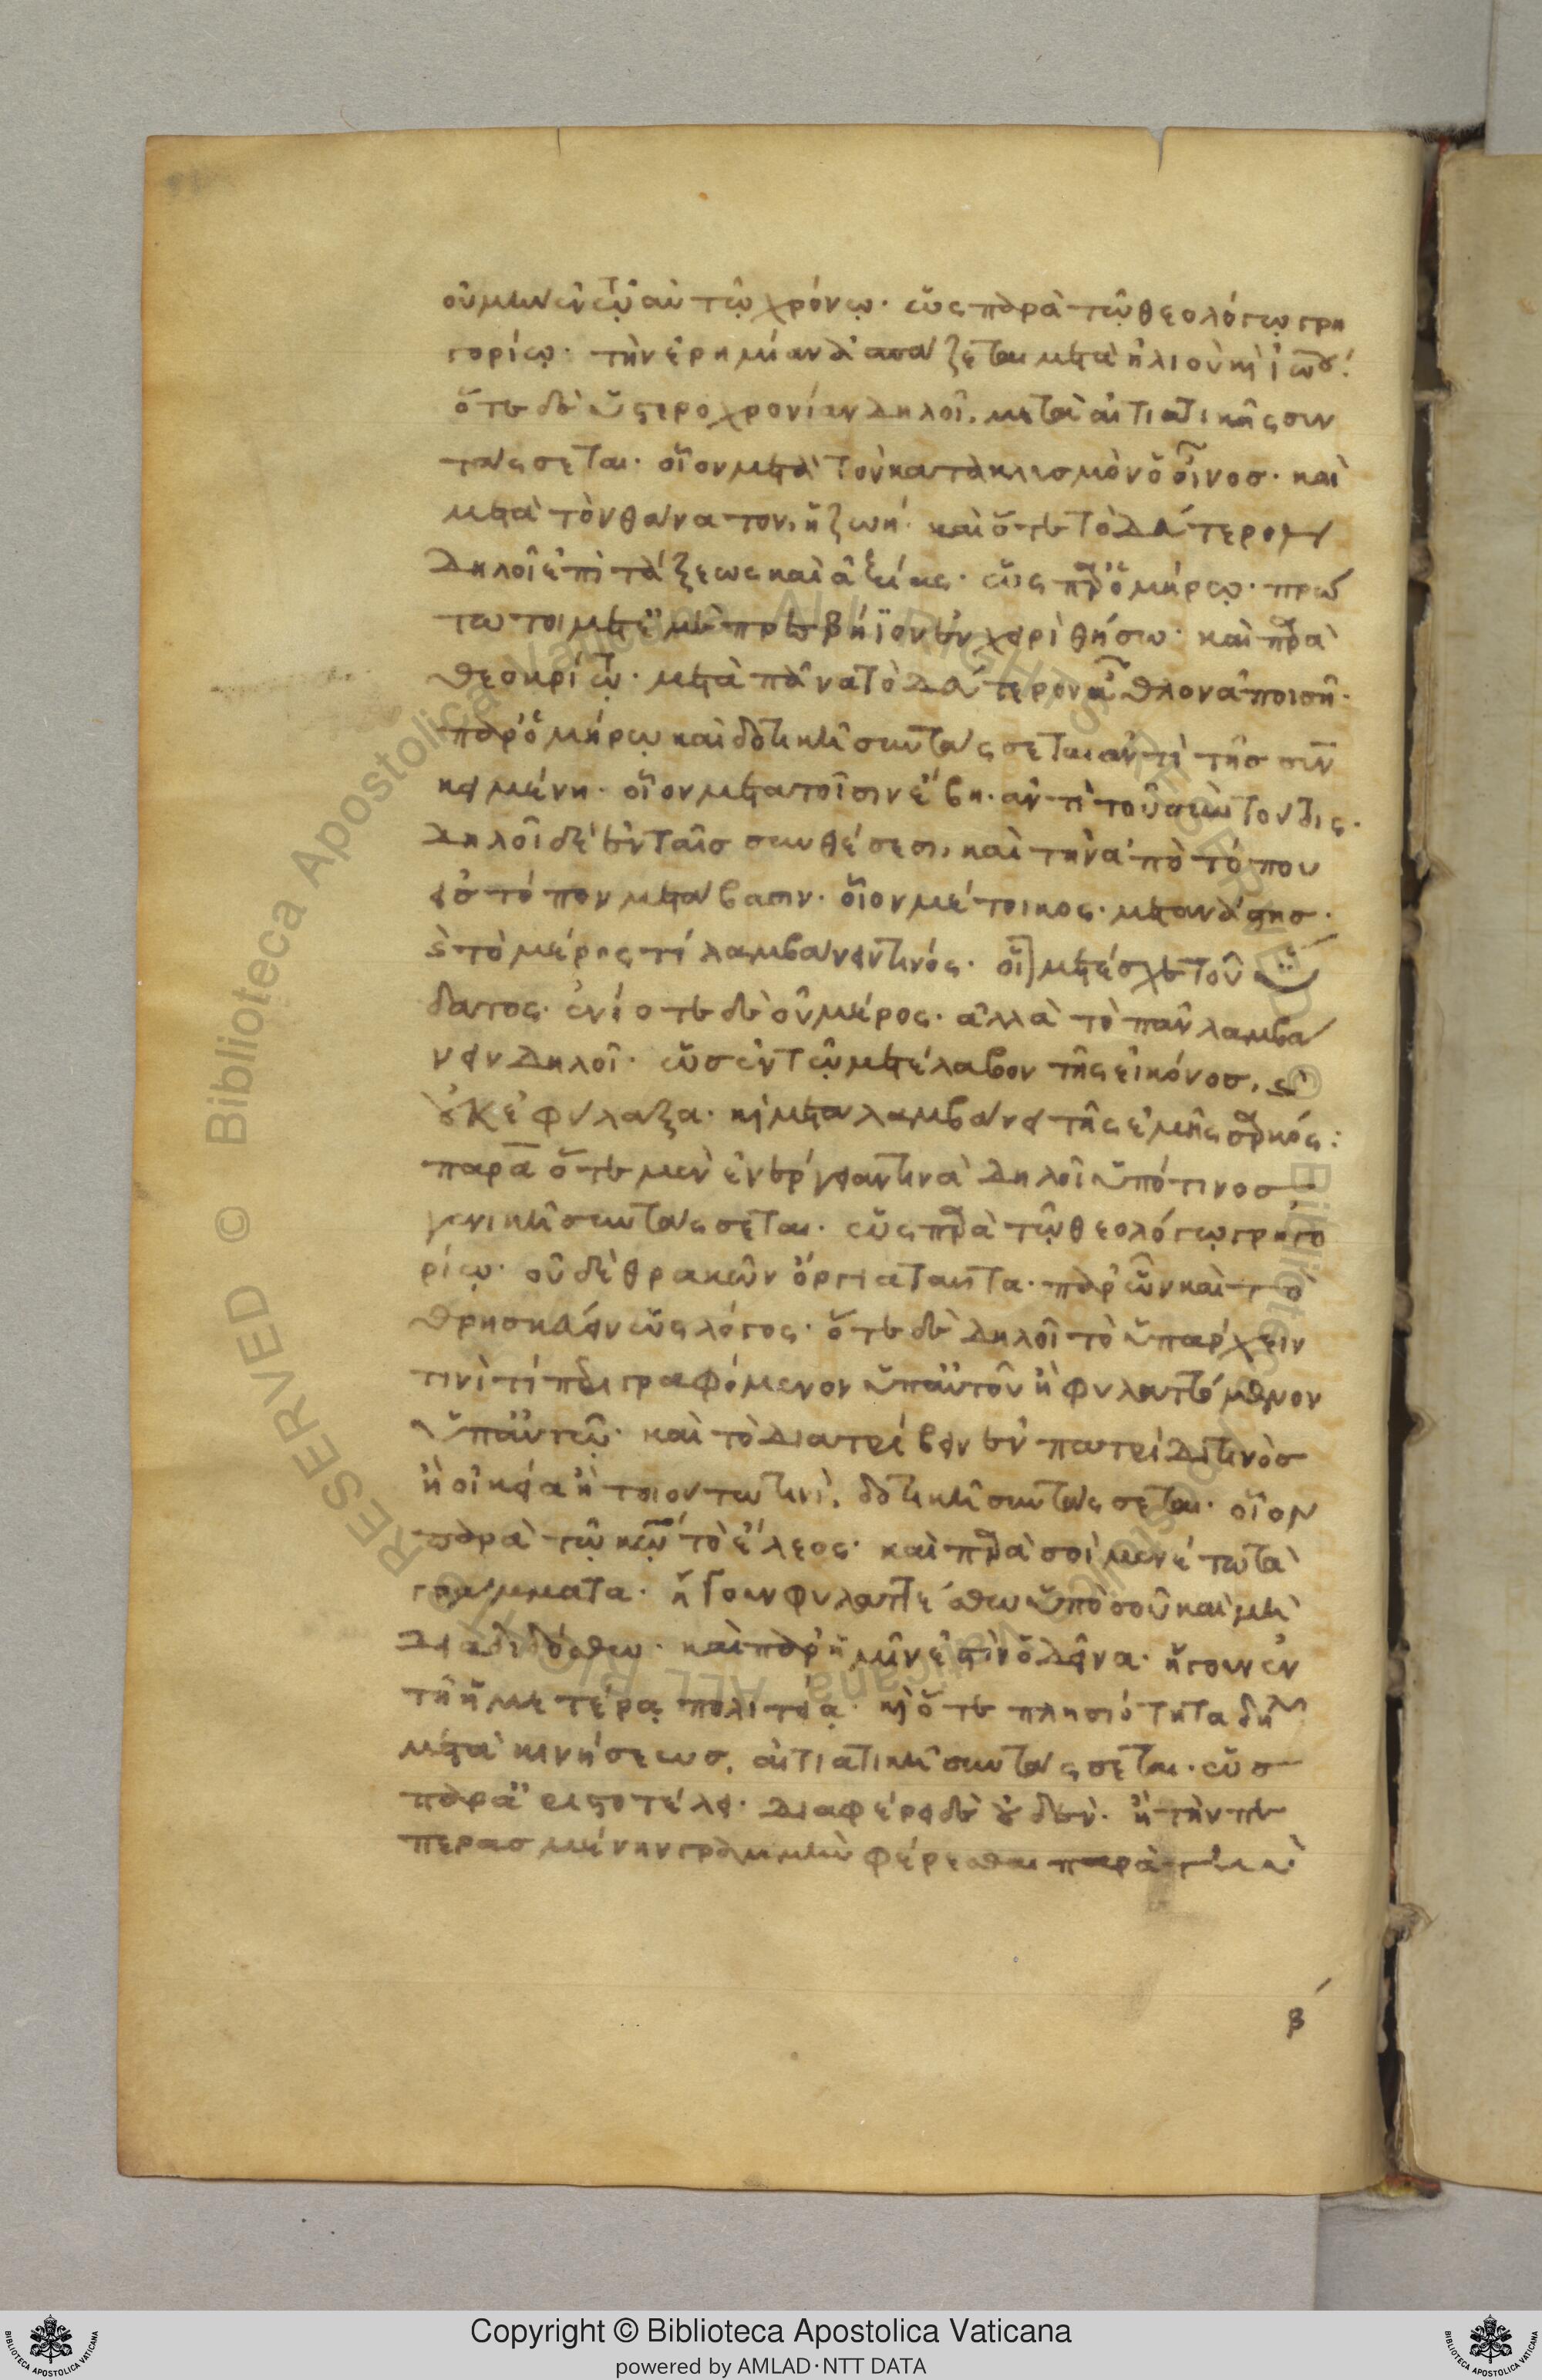 οὐ μὴν ἐν τῷ αὐτῷ χρόνῳ· ὡς παρὰ τῷ θεολόγῳ γρη
γορίῳ· τὴν ἐρημίαν ἀσπάζεται μετὰ ἠλιοὺ κὴ ἰω̅ου·
ὅτε δὲ ὑστεροχρονίαν δηλοῖ, μετὰ αἰτιατικῆς συν
τάσσεται· οἷον μετὰ τὸν κατακλυσμὸν ὁ οἶνος· καὶ
μετὰ τὸν θάνατον, ἡ ζωή· καὶ ὅτε τὸ δεύτερον
δηλοῖ ἐπὶ τάξεως καὶ ἀξίας· ὡς παρ ὁμήρῳ· πρώ
τω τοι μετ ἐμὲ πρεσβήϊον ἐν χερὶ θήσω· καὶ παρὰ
θεοκρίτῳ· μετὰ πᾶνα τὸ δεύτερον ἆθλον ἀποισῇ·
παρ ὁμήρῳ καὶ δοτικῇ συντάσσεται ἀντὶ τῆς σὺν
κειμένη· οἷον μετὰ τοῖσιν ἔβη· ἀντὶ τοῦ σὺν τούτοις·
δηλοῖ δὲ ἐν ταῖς συνθέσεσι, καὶ τὴν ἀπὸ τόπου
εἰς τόπον μετάβασιν· οἷον μέτοικος· μετανάστης·
κὴ τὸ μέρος τί λαμβάνειν τινός· οἷον μετέσχε τοῦ ὕ
δατος· ἐνίοτε δὲ οὐ μέρος· ἀλλὰ τὸ πᾶν λαμβά
νειν δηλοῖ· ὡς ἐν τῷ μετέλαβον τῆς εἰκόνος, κὴ
οὐκ ἐφύλαξα· κὴ μεταλαμβάνει τῆς ἐμῆς σαρκός:
παρὰ ὅτε μὲν ἐνέργειαν τινὰ δηλοῖ ὑπό τινος
γενικῇ συντάσσεται· ὡς παρὰ τῷ θεολόγῳ γρηγο
ρίῳ· οὐδὲ θρακῶν ὄργια ταῦτα· παρ ὧν καὶ τὸ
θρησκεύειν ὡς λόγος· ὅτε δὲ δηλοῖ τὸ ὑπάρχειν
τινὶ τί περιγραφόμενον ὑπ αὐτοῦ ἢ φυλαττόμενον
ὑπ αὐτῷ· καὶ τὸ διατρίβειν ἐν πατρίδι τινὸς
ἢ οἰκία ἢ τοιούτω τινὶ, δοτικῇ συντάσσεται· οἷον
παρὰ τῷ κω̅ τὸ ἔλεος· καὶ παρὰ σοὶ μενέτω τὰ
γράμματα· ἤγουν φυλαττέσθω ὑπὸ σοῦ καὶ μὴ
διαδιδόσθω· καὶ παρ ἡμῖν ἐστὶν ὁ δεῖνα· ἤγουν ἐν
τῇ ἡμετέρᾳ πολιτείᾳ· κὴ ὅτε πλησιότητα δη
μετὰ κινήσεως, αἰτιατικῇ συντάσσεται· ὡς
παρὰ ἀριστοτέλει· διαφέρει δὲ οὐδὲν· ἢ τὴν πε
περασμένην γραμμὴν φέρεσθαι παρὰ
β
Copyright © Biblioteca Apostolica Vaticana
powered by AMLAD·NTT DATA